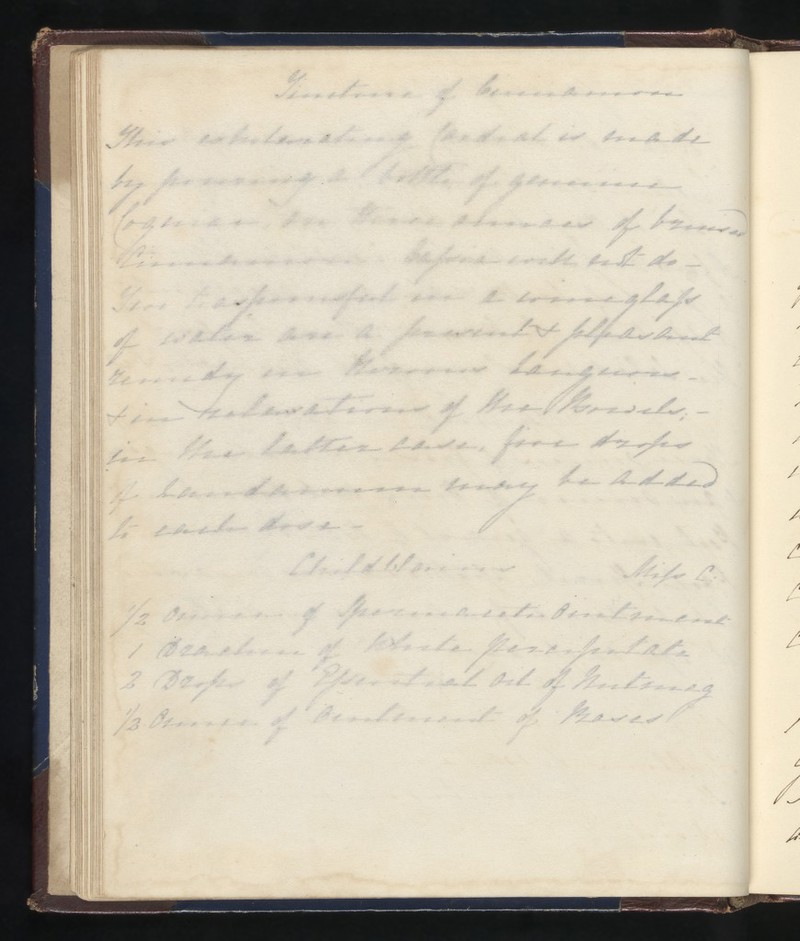 Tincture of Cinnamon
This exhilarating Cordial is made
by pouring a bottle of genuine
Cognac on three ounces of bruised
Cinnamon Cassia will not do –
Two teaspoonsful in a wineglass
of water are a present & pleasant
remedy in Nervous Languors –
& in relaxations of the Bowels; –
in the latter case, five drops
of Laudanum may be added
to each dose –
Miss C.
1/2 Ounce of Spermaceti Ointment
1 Drachm of White Precipitate
2 Drops of Essential Oil of Nutmeg
1/3 Ounce of Ointment of Roses